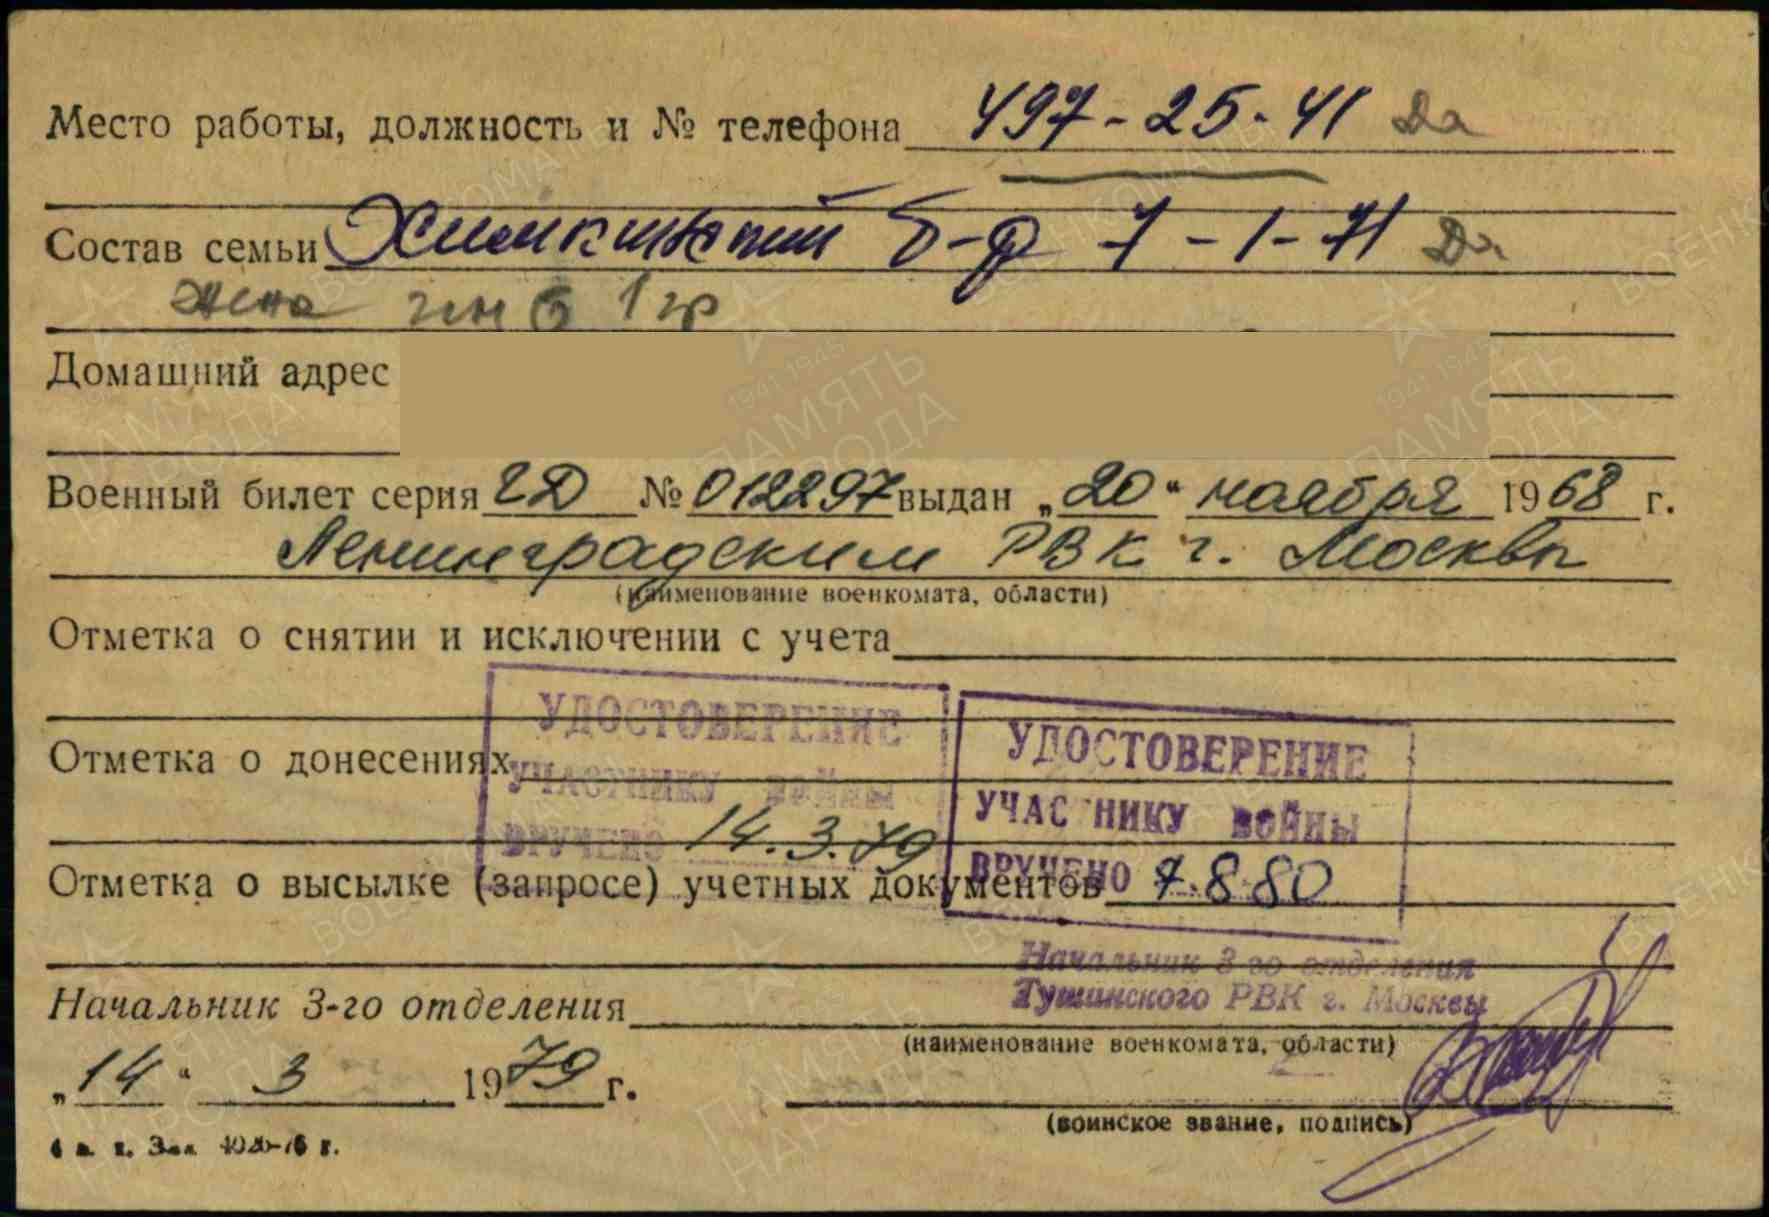 Место работы, должность и № телефона 497-25-41 Да
Состав семьи Химкинский б-р 7-1-71 Да
жена
Домашний адрес
Военный билет серия ГД № 012297 выдан „20“ ноября 1968 г.
Ленинградским РВК г. Москвы
(наименование военкомата, области)
Отметка о снятии и исключении с учета
УДОСТОВЕРЕНИЕ
УЧАСТНИКУ ВОЙНЫ
ВРУЧЕНО 14.3.79
УДОСТОВЕРЕНИЕ
УЧАСТНИКУ ВОЙНЫ
ВРУЧЕНО 7.8.80
Отметка о донесениях
Отметка о высылке (запросе) учетных документов
Начальник 3-го отделения
Тушинского РВК г. Москвы
Начальник 3-го отделения
(наименование военкомата, области)
„14“ 3 1979 г.
(воинское звание, подпись)
ПАМЯТЬ НАРОДА
1941 1945
ВОЕНКОМАТЫ